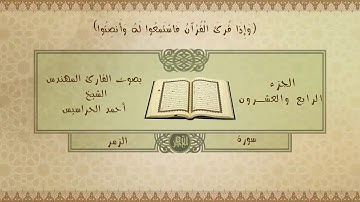 (وَإِذَا قُرِئَ الْقُرْآنُ فَاسْتَمِعُوا لَهُ وَأَنْصِتُوا)
الجزء
الرابع والعشرون
بصوت القارئ المهندس
الشيخ
أحمد الحراسيس
سورة
الزمر